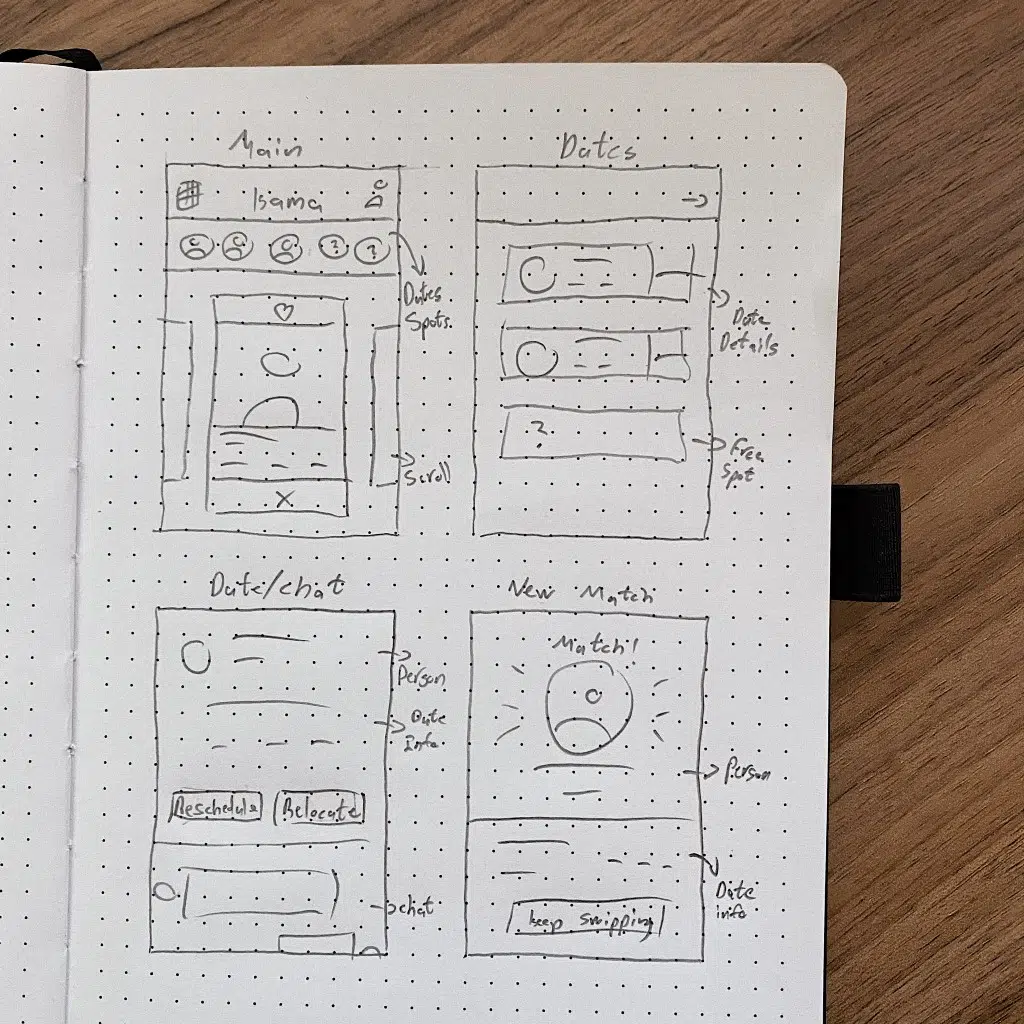 Main
Isama
?
?
Dates
Spots
X
Scroll
Dates
Date
Details
?
Free
Spot
Date/chat
Person
Date
Info
Reschedule
Relocate
chat
New Match
Match!
Person
Date
info
keep swipping